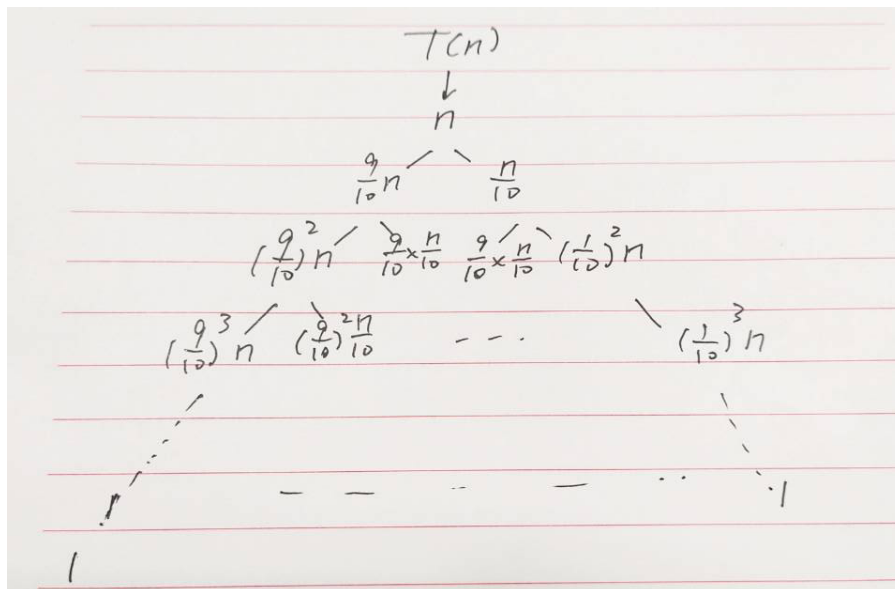 T(n)
↓
n
9/10 n n/10
(9/10)² n 9/10 × n/10 9/10 × n/10 (1/10)² n
(9/10)³ n (9/10)² n/10 - - - (1/10)³ n
1
1